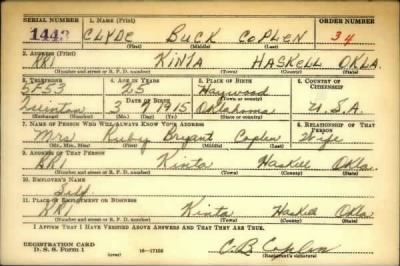 SERIAL NUMBER 1. NAME (Print) ORDER NUMBER
1443 CLYDE BUCK COPLEN 34
(First) (Middle) (Last)
2. ADDRESS (Print)
RR1 KINTA HASKELL OKLA.
(Number and street or R. F. D. number) (Town) (County) (State)
3. TELEPHONE 4. AGE IN YEARS 5. PLACE OF BIRTH 6. COUNTRY OF CITIZENSHIP
5F53 25 Haywood
DATE OF BIRTH (Town or county)
Quinton 3 9 1915 Oklahoma U.S.A.
(Exchange) (Number) (Mo.) (Day) (Yr.) (State or country)
7. NAME OF PERSON WHO WILL ALWAYS KNOW YOUR ADDRESS 8. RELATIONSHIP OF THAT PERSON
Mrs Ruby Bryant Coplen Wife
(Mr., Mrs., Miss) (First) (Middle) (Last)
9. ADDRESS OF THAT PERSON
RR1 Kinta Haskell Okla.
(Number and street or R. F. D. number) (Town) (County) (State)
10. EMPLOYER'S NAME
Self
11. PLACE OF EMPLOYMENT OR BUSINESS
RR1 Kinta Haskell Okla
(Number and street or R. F. D. number) (Town) (County) (State)
I AFFIRM THAT I HAVE VERIFIED ABOVE ANSWERS AND THAT THEY ARE TRUE.
REGISTRATION CARD
D. S. S. Form 1 (over) 16—17105 C. B. Coplen
(Registrant's signature)